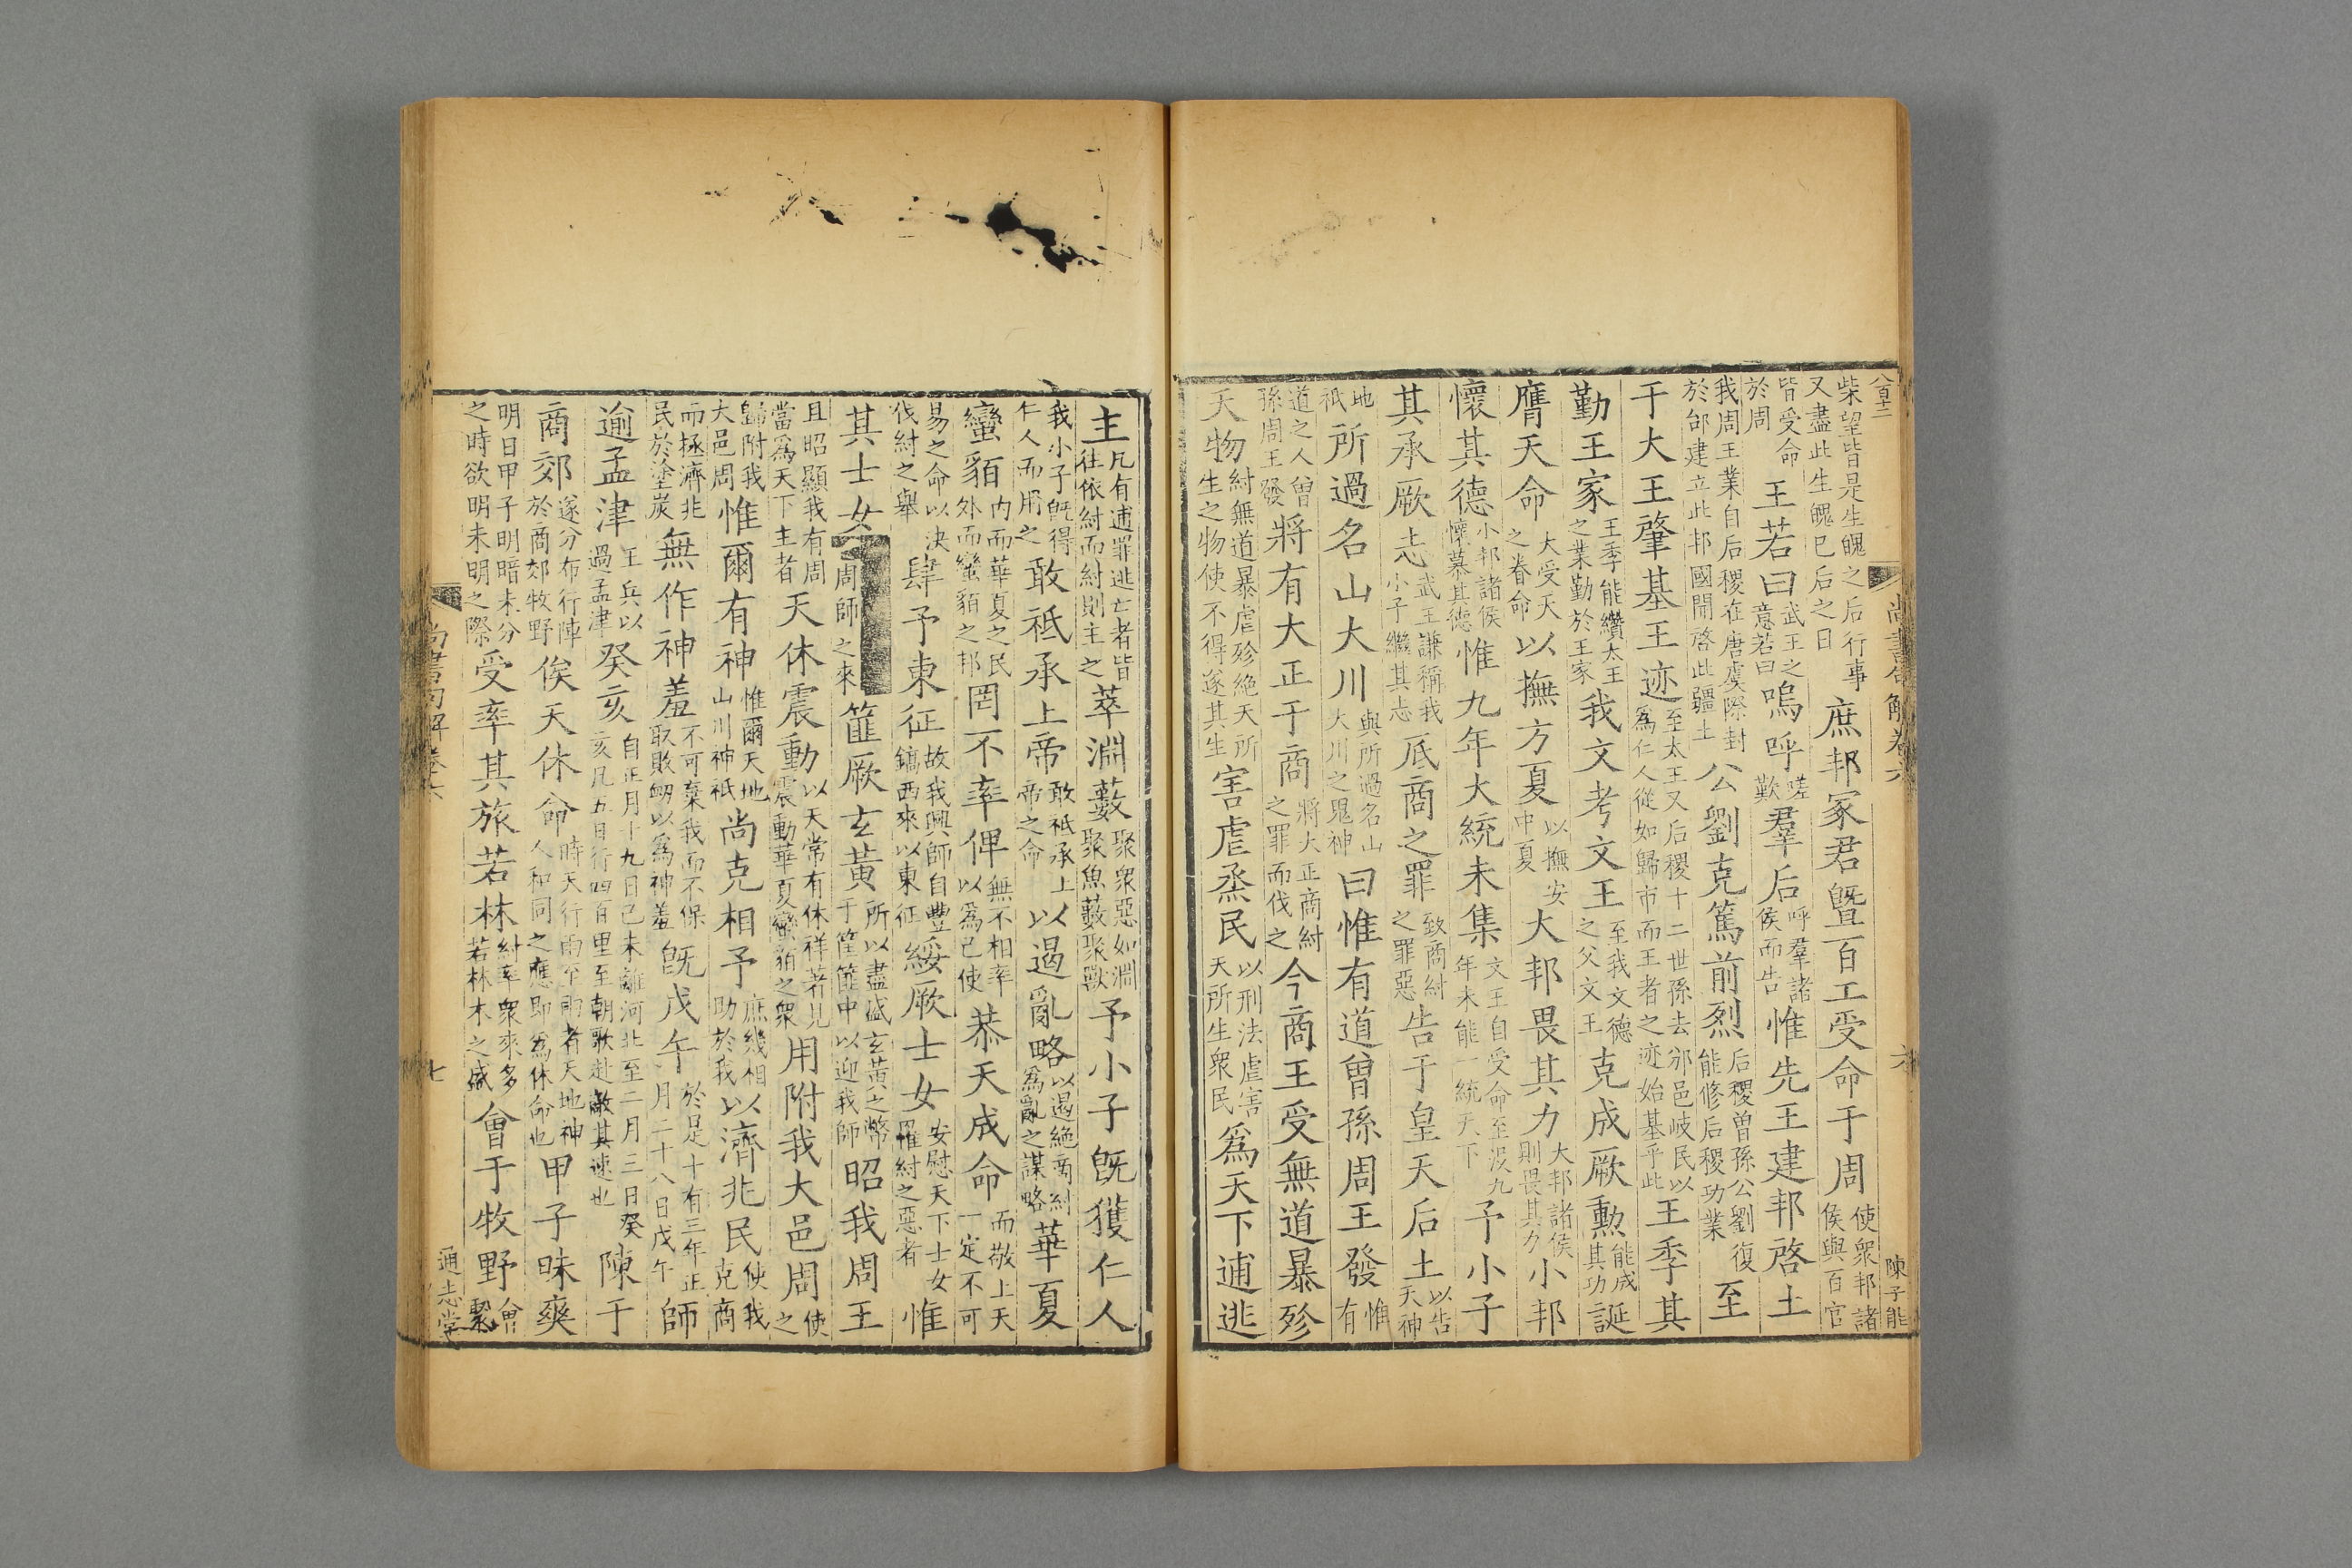 八百十二
尚書句解卷六 六 陳子能
柴望皆是生魄之后行事又盡此生魄巳后之日庶邦冢君暨百工受命于周使衆邦諸侯與百官
皆受命於周王若曰武王之意若曰嗚呼嗟歎羣后呼羣諸侯而告惟先王建邦啓土
我周王業自后稷在唐虞際封於邰建立此邦國開啓此疆土公劉克篤前烈后稷曽孫公劉復能修后稷功業至
于大王肇基王迹至太王又后稷十二世孫去邠邑岐民以爲仁人從如歸市而王者之迹始基乎此王季其
勤王家王季能纘太王之業勤於王家我文考文王至我文德之父文王克成厥勲能成其功誕
膺天命大受天之眷命以撫方夏以撫安中夏大邦畏其力大邦諸侯則畏其力小邦
懷其德小邦諸侯懷慕其德惟九年大統未集文王自受命至没九年未能一統天下予小子
其承厥志武王謙稱我小子繼其志厎商之罪致商紂之罪惡告于皇天后土以告天神
地祇所過名山大川與所過名山大川之鬼神曰惟有道曾孫周王發惟有
道之人曾孫周王發將有大正于商將大正商紂之罪而伐之今商王受無道暴殄
天物紂無道暴虐殄絶天所生之物使不得遂其生害虐烝民以刑法虐害天所生衆民爲天下逋逃
主凡有逋罪逃亡者皆往依紂而紂則主之萃淵藪聚衆惡如淵聚魚藪聚獸予小子旣獲仁人
我小子旣得仁人而用之敢祗承上帝敢祗承上帝之命以遏亂略以遏絶商紂爲亂之謀略華夏
蠻貊内而華夏之民外而蠻貊之邦罔不率俾無不相率以爲己使恭天成命而敬上天一定不可
易之命以決伐紂之舉肆予東征故我興師自豐鎬西來以東征綏厥士女安慰天下士女罹紂之惡者惟
其士女周師之來篚厥玄黃所以盡盛玄黃之幣于筐篚中以迎我師昭我周王
且昭顯我有周當爲天下主者天休震動以天常有休祥著見震動華夏蠻貊之衆用附我大邑周使之
歸附我大邑周惟爾有神惟爾天地山川神祇尚克相予庶幾相助於我以濟兆民使我克商
而拯濟兆民於塗炭無作神羞不可棄我而不保取敗衂以爲神羞旣戊午於是十有三年正月二十八日戊午師
逾孟津王兵以過孟津癸亥自正月十九日己未離河北至二月三日癸亥凡五日行四百里至朝歌赴敵其速也陳于
商郊遂分布行陣於商郊牧野俟天休命時天行雨不助者天地神人和同之應即爲休命也甲子昧爽
明日甲子明暗未分之時欲明未明之際受率其旅若林紂率衆來多若林木之盛會于牧野會繫
尚書句解卷六 七 通志堂